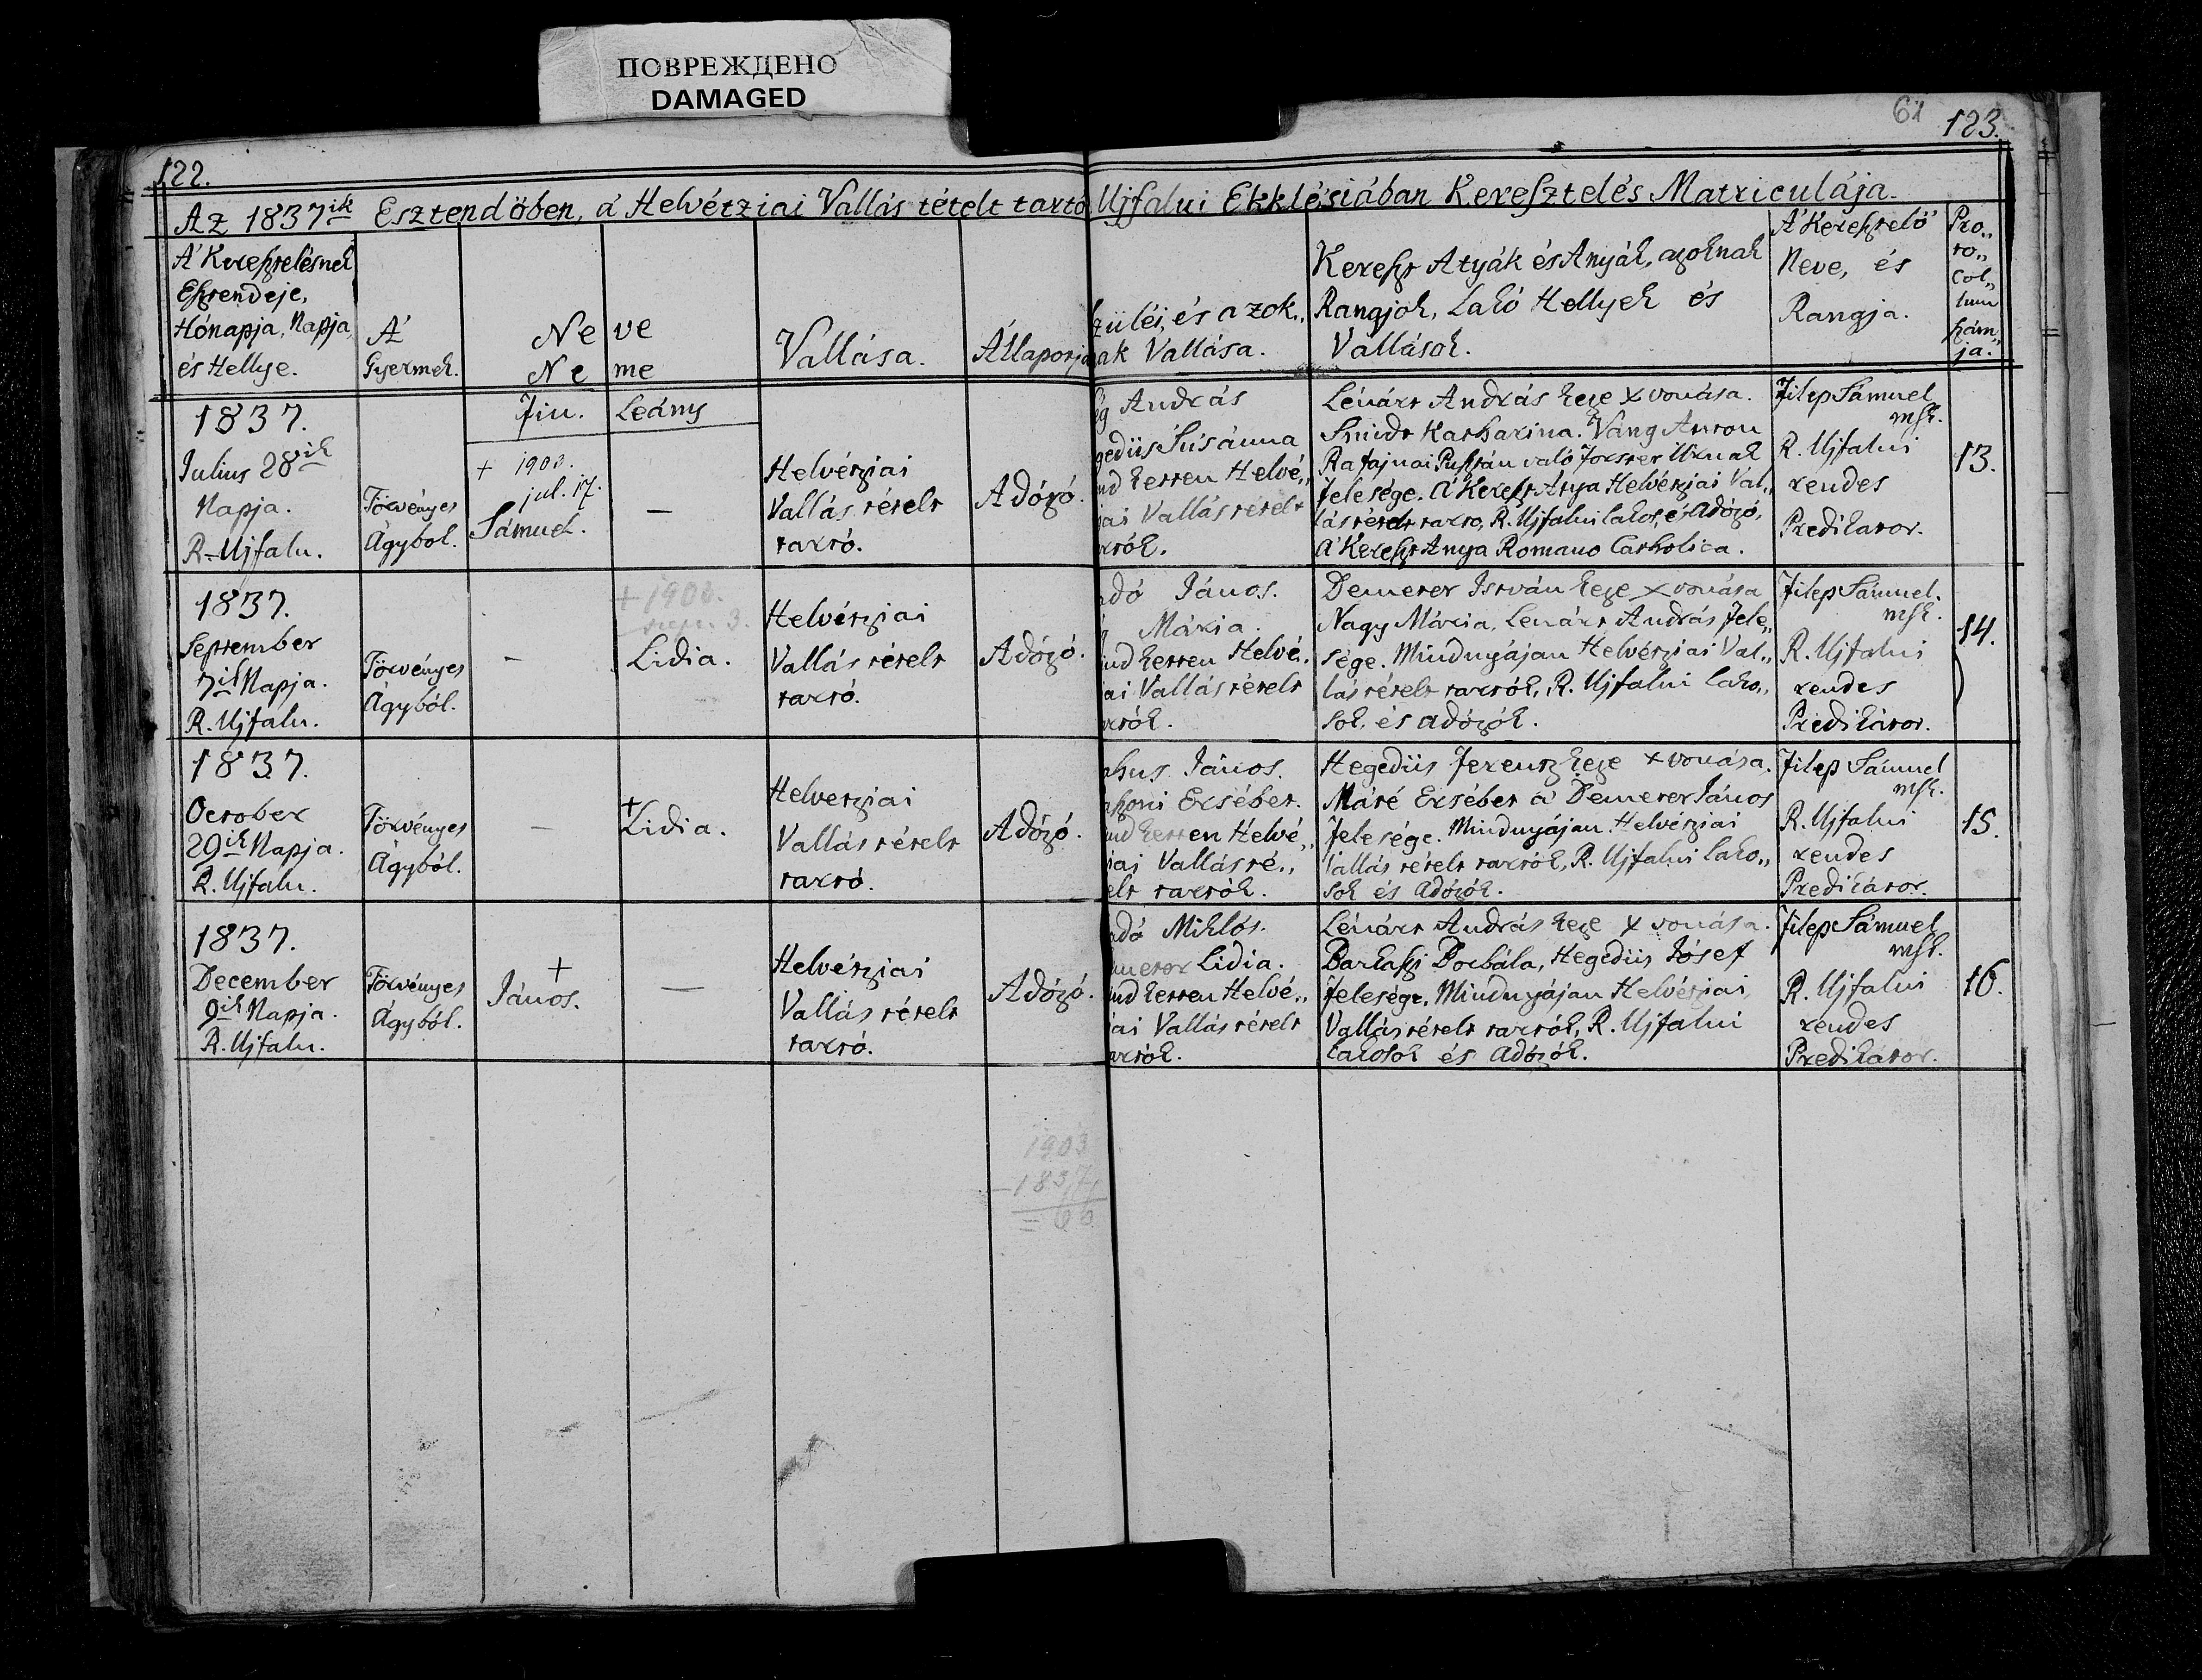 ПОВРЕЖДЕНО
DAMAGED
61
122.
123.
Az 1837ik Esztendőben, a' Helvétziai Vallás tételt tartó Ujfalui Ekklésiában Keresztelés Matriculája.
A' Keresztelésnek
Esztendeje,
Hónapja, Napja,
és Hellye.
A'
Gyermek.
Neve
Neme
Vallása.
Állapotja
züléi, és azok,,
ak Vallása.
Kereszt Atyák és Anyák, azoknak
Rangjok, Lakó Hellyek és
Vallások.
A' Keresztelő
Neve, és
Rangja.
Pro,,
to,,
col,,
lum
szám,,
ja.
Fiu.
Leány
1837.
Julius 28ik
Napja.
R. Ujfalu.
Törvényes
Ágyból.
+ 190
jul. 17.
Sámuel.
—
Helvétziai
Vallás tételt
tartó.
Adózó.
g András
gedüs Súsánna
nd ketten Helvé,,
iai Vallás tételt
rtók.
Lénárt András keze x vonása.
Smidt Katharina. Váng Anton
Rafajnai Pusztán való Forster Urnak
felesége. A' Kereszt Atya Helvétziai Val,,
lás tételt tarto, R. Ujfalui lakos, és Adózó,
A' Kereszt Anya Romano Catholica.
Filep Sámuel
mk.
R. Ujfalui
rendes
Predikator.
13.
1837.
September
7ik Napja.
R. Ujfalu.
Törvényes
Ágyból.
—
+ 190
3.
Lidia.
Helvétziai
Vallás tételt
tartó.
Adózó.
dó János.
Mária.
nd ketten Helvé,,
iai Vallás tételt
rtók.
Demeter István keze x vonása
Nagy Mária, Lenárt András fele,,
sége. Mindnyájan Helvétziai Val,,
lás tételt tartók, R. Ujfalui lako,,
sok, és adózók.
Filep Sámuel.
mk.
R. Ujfalui
rendes
Predikátor.
14.
1837.
October
29ik Napja.
R. Ujfalu.
Törvényes
Ágyból.
—
+
Lidia.
Helvetziai
Vallás tételt
tartó.
Adózó.
hus János.
Ersébet.
nd ketten Helvé,,
iai Vallás té,,
elt tartók.
Hegedüs Ferentz keze x vonása.
Máré Ersébet a' Demeter János
felesége. Mindnyájan Helvétziai
Vallás tételt tartók, R. Ujfalui lako,,
sok és adózók.
Filep Sámuel
mk.
R. Ujfalui
rendes
Predikátor.
15.
1837.
December
9ik Napja.
R. Ujfalu.
Törvényes
Ágyból.
+
János.
—
Helvétziai
Vallás tételt
tartó.
Adózó.
dó Miklós.
meter Lidia.
nd ketten Helvé,,
iai Vallás tételt
rtók.
Lénárt András keze x vonása.
Barkaszi Borbála, Hegedüs Jósef
felesége, Mindnyájan Helvétziai
Vallás tételt tartók, R. Ujfalui
lakosok és adózók.
Filep Sámuel
mk.
R. Ujfalui
rendes
Predikátor.
16.
1903
- 1837
= 6